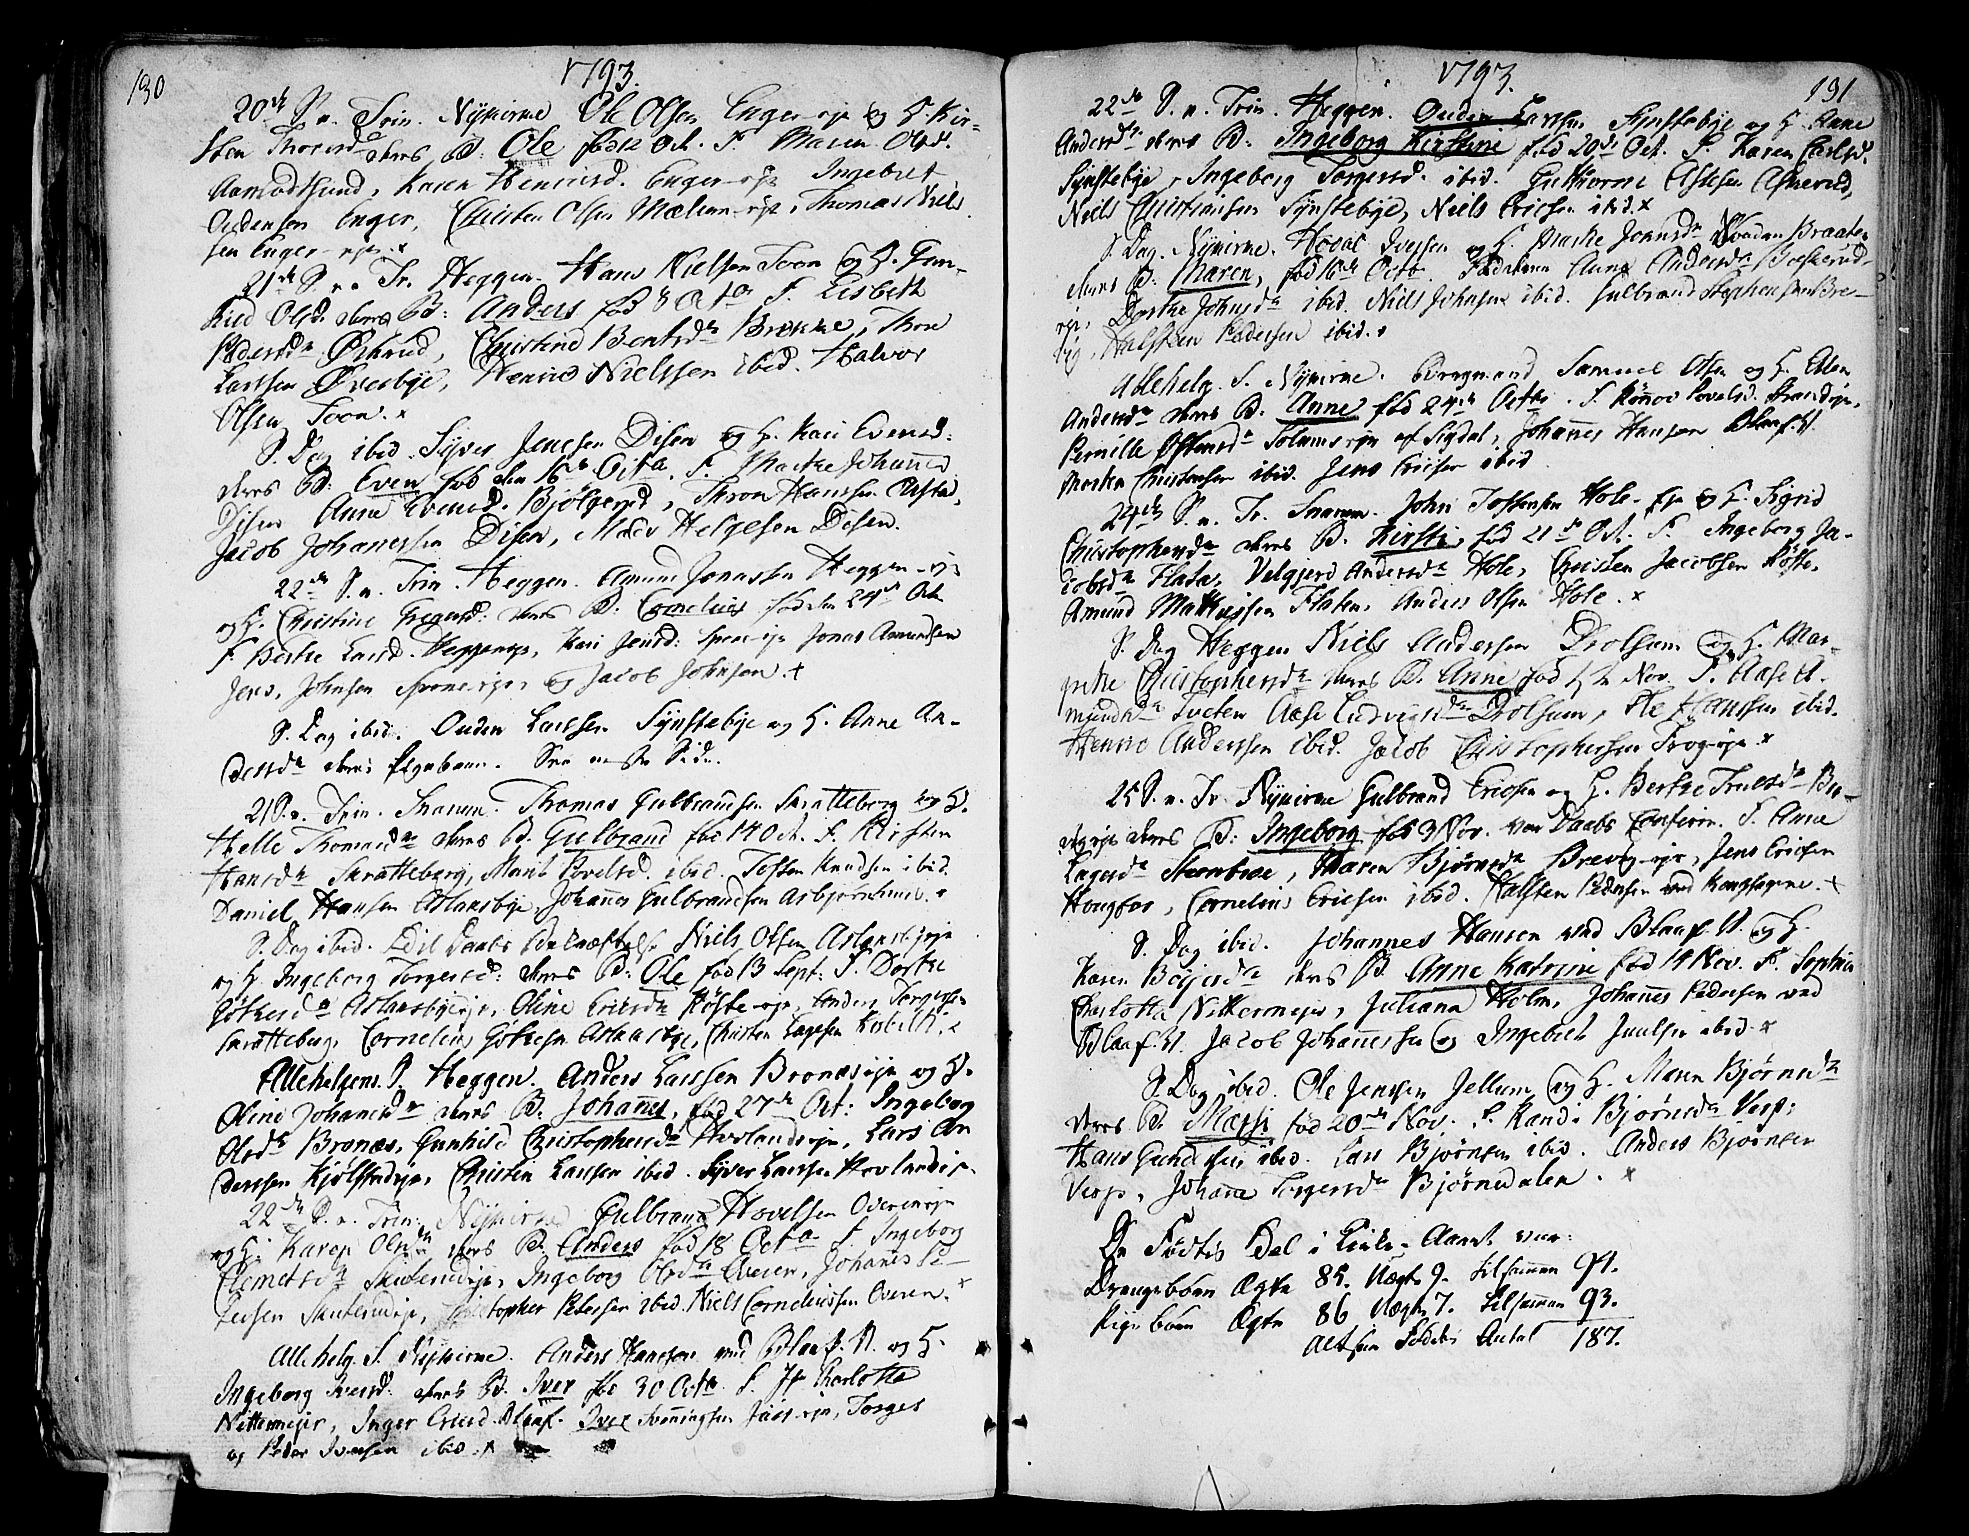 130
1793.
20de S. n. Trin. Nykirke Ole Olsen Enger-eje og H. Kir-
sten Thorsd. deres B: Ole fød 12 Oct. F. Maren Olsd.
Aamodtsund, Karen Henricsd. Enger-eje Ingebret
Oudensen Enger, Christen Olsen Mælum-eje, Thomas Niel-
sen Enger-eje. x
21de S. n. Tr. Heggen. Hans Nielsen Toon og H. Gun-
hild Olsd. deres B: Anders fød 8 Octo. F. Lisbeth
Pedersdr Øshrud, Christine Bentsdr Brekke, Thore
Larssen Øverbye, Henric Nielssen ibid. Halvor
Olsen Toon. x
S. Dag ibid. Syver Jenssen Disen og H. Kari Evensd:
deres B: Even fød den 16de Octo. F. Marthe Johannesd
Disen Anne Evensd. Bjølgerud, Thron Hanssen
Jacob Johanessen Disen, Mads Helgesen Disen.
22de S. n. Trin. Heggen. Amund Jonassen Heggen-eje
og H. Christine Gregersd: deres B. Cornelius fød den 24de Oct.
F. Berthe Larsd. Heggeneje, Kari Jensd: Sponeeje Jonas Amundsen
Jens Johnsen Spone-eje, og Jacob Johnsen. x
S. Dag ibid. Ouden Larssen Synstebye og H. Anne An-
dersdr deres Pigebarn. See neste Side.
21 S. n. Trin. Snarum. Thomas Gulbransen Skratteberg og H.
Helle Thomasdr deres B. Gulbrand fød 14 Oct. F. Kirsten
Hansdr Skratteberg, Marit Povelsd. ibid. Tosten Knudsen ibid.
Daniel Hansen Aslaksbye, Johannes Gulbrandsen Asbjørnhuus. x
S. Dag ibid. Edil Daabs Bekræftelse Niels Olsen Aslaksbyeeje
og H. Ingeborg Torgersd: deres B: Ole fød 13 Sept: F. Dorthe
Gøthesdr Aslaksbyeeje, Oline Ericsdr Røste-eje, Anders Torgersen
Skratteberg, Cornelius Gøthesen Aslaksbye, Christen Lagesen x
Allehelgens S. Heggen. Anders Larssen Bronæseje og H.
Oline Johanesdr deres B. Johannes, fød 27de Oct: Ingeborg
Olsdr Bronæs, Gunhild Christophersdr Hovlandseje, Lars An
derssen Kjølstadeje, Christen Larsen ibid. Syver Larssen Hovlandsie.
22de S. n. Trin: Nykirke Gulbrand Hovelsen Overeneje
og H. Karen Olsdr deres B. Anders fød 18 Octo. F. Ingeborg
Clemetsdr Skuterudeje, Ingeborg Olsdr Overen, Johannes Pe-
dersen Skuterudeje, Christopher Pedersen ibid. Niels Corneliussen Overen. x
Allehelg. S. Nykirke. Anders Hanssen ved Blaaf. V. og H.
Ingeborg Iversd. deres B. Iver fød 30 Octo. F. Jfr Charlotte
Nettermejer, Inger Ericsd. Blaaf. Iver Svenningsen eje, Torger
og Peder Iversen ibid. x
1793.
131
22de S. n. Trin. Heggen. Ouden Larssen Synstebye og H. Anne
Andersdr deres B. Ingeborg Kirstine fød 20de Oct. F. Karen Carlsd.
Synstebye, Ingeborg Torgersd. ibid. Guttorm Askesen Askerud,
Niels Christiansen Synstebye, Niels Ericsen ibid. x
S. Dag. Nykirke. Hovel Iversen og H. Marthe Jonasdr Braaten
deres B. Maren, fød 16de Octo. Faddere Anne Andersdr
eje, Dorthe Johnsdr ibid. Niels Johnsen ibid. Gulbrand Stephensen Bre-
vig, Halsteen Pedersen ibid. x
Allehelg. S. Nykirke. Bergmand Samuel Olsen og H. Ellen
Andersdr deres B. Anne fød 24de Octo. F. Rønov Povelsd. Strandeje,
Pernille Østensdr Solumseje af Sigdal, Johannes Hansen Blaaf. V.
Morten Christensen ibid. Jens Ericsen ibid.
24de S. n. Tr. Snarum. John Tostensen Hole-Eje og H. Sigrid
Christophersdr deres B. Kirsti, fød 21de Oct. F. Ingeborg Ja-
cobsdr Flata, Velgjerd Andersdr Hole, Christen Jacobsen Røste,
Amund Mathissen Flaten, Anders Olsen Hole. x
S. Dag Heggen Niels Anderssen Drolsum og H. Mar-
grethe Christophersdr deres B. Anne fød Nov. F. Aase A-
mundsdr Tveten Aase Ludvigsdr Drolsum, Ole Hanssen ibid.
Henric Anderssen ibid. Jacob Christophersen Frog-eje. x
25 S. n. Tr. Nykirke Gulbrand Ericsen og H. Berthe Trulsdr
eje deres B: Ingeborg fød 3 Nov. ved Daabs Confirm. F. Anne
Lagesdr Steenbroe, Maren Bjørnsdr Brevig-eje, Jens Ericsen
Hougfos, Cornelius Ericsen ibid. Halsten Pedersen ved Kongsagene. x
S. Dag ibid. Johannes Hansen ved Blaaf. V. og H.
Karen Børjesdr deres B. Anne Katrine fød 14 Nov. F. Sophia
Charlotta Nettermejer, Juliana Holm, Johannes Pedersen ved
Blaaf. V. Jacob Johannessen og Ingebret Juulsen ibid. x
S. Dag ibid. Ole Jenssen Jellum og H. Maren Bjørnsdr
deres B. Massi fød 20de Nov. F. Randi Bjørnsdr Vesp:
Hans Gundersen ibid. Lars Bjørnsen ibid. Anders Bjørnsen
Vesp, Johanne Torgersdr Bjørndalen. x
De Fødtes Tal i Kirke-Aaret var:
Drengebørn Ægte 85. Uægte 9. tilsammen 94.
Pigebørn Ægte 86 Uægte 7. tilsammen 93.
Altsaa Fødde Antal 187.